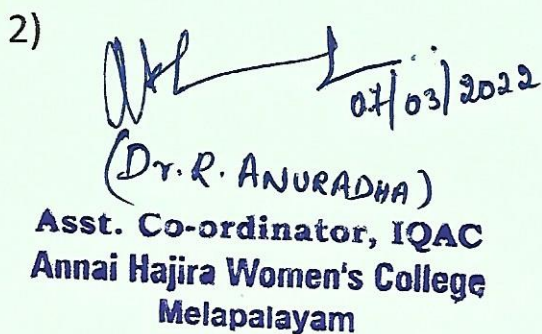 2)
07/03/2022
(Dr. R. ANURADHA)
Asst. Co-ordinator, IQAC
Annai Hajira Women's College
Melapalayam